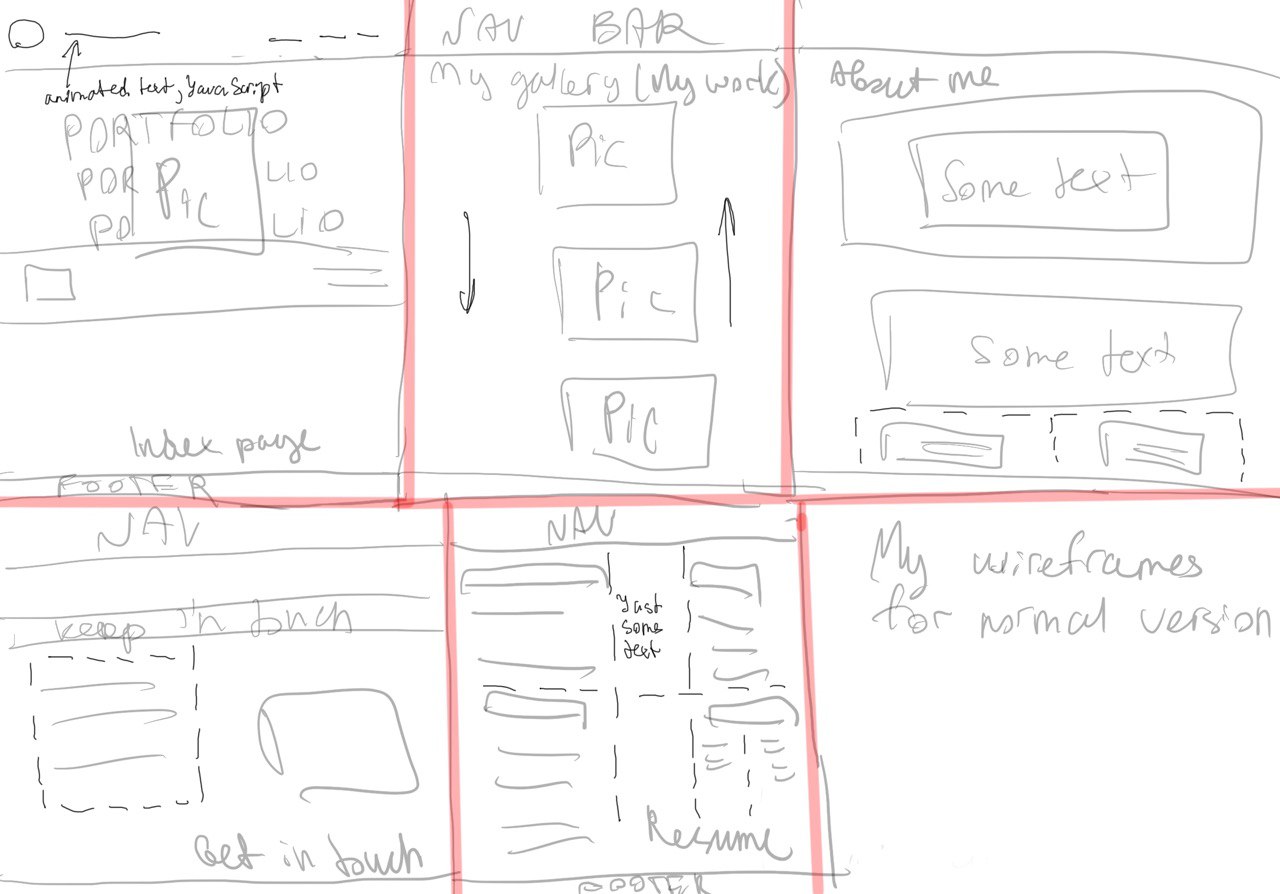 animated text, JavaScript
PORTFOLIO
POR
LIO
PO
LIO
Pic
Index page
FOOTER
NAV BAR
My gallery (My work)
Pic
Pic
Pic
About me
Some text
Some text
NAV
keep in touch
Get in touch
NAV
Just
some
text
Resume
FOOTER
My wireframes
for normal version